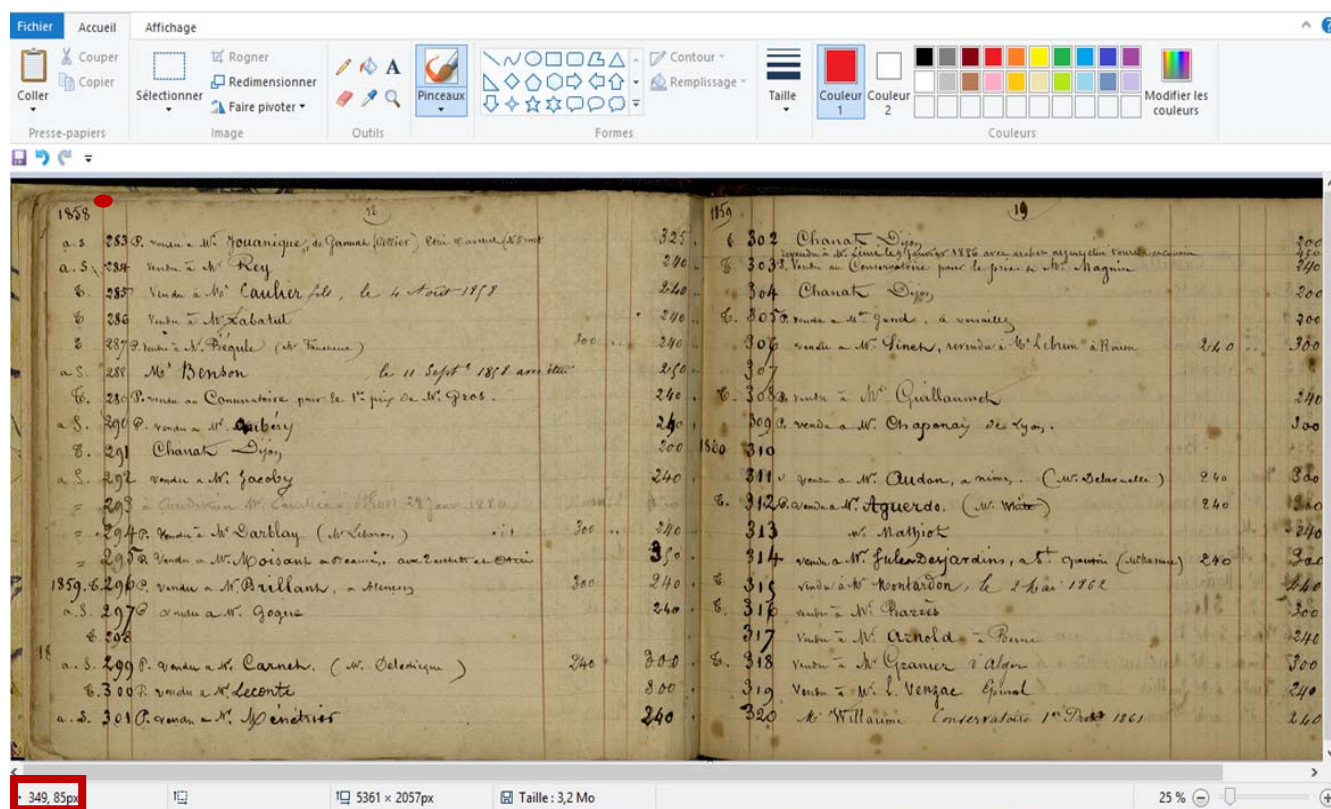 Fichier Accueil Affichage
Coller
Couper
Copier
Presse-papiers
Sélectionner
Rogner
Redimensionner
Faire pivoter
Image
Outils
Pinceaux
Formes
Contour
Remplissage
Taille
Couleur 1
Couleur 2
Modifier les couleurs
Couleurs
1858 18
a.S. 283 P. vendu a Mr. Jouanique, de Gannat (Cellier) 325
a.S. 284 Vendu à Mr Rey 240
285 Vendu à Mr Caulier fils, le 4 Août 1858 240
286 Vendu à Mr Labatut 240
287 P. vendu à Mr. Béguié 300 240
a.S. 288 Mr Benson le 11 Septe 1858 avec étui 250
289 P. vendu au Conservatoire pour le 1er prix de Mr. Gros. 240
a.S. 290 P. vendu a Mr. Aubéry 240
291 Chanat Dijon 200
a.S. 292 vendu a Mr. Jacoby 240
= 293
= 294 P. Vendu à Mr Darblay (Mr Lebaron) 300 240
= 295 P. Vendu à Mr. Moisant 350
1859. 296 P. vendu a Mr Brillant, a Alençon 300 240
a.S. 297 P. vendu a Mr. Gogue 240
298
a.S. 299 P. vendu a Mr. Carnet. 240 300
300 P. vendu a Mr. Leconte 300
a.S. 301 P. vendu a Mr. Ménétrier 240
1859 19
302 Chanat Dijon 200
450
303 P. Vendu au Conservatoire pour le prix de Mr. Magnin 240
304 Chanat Dijon 200
305 P. vendu a Mr Gand, a versailles 200
306 vendu a Mr. Linet, revendu à Mr Lebrun à Rouen 240 300
307
308 P. vendu à Mr Guillaumet 240
309 P. vendu a Mr. Chaponay de Lyon. 300
1860 310
311 vendu a Mr. Audon, a nimes. (Mr. Delaruelle) 240 300
312 P. vendu a Mr. Aguerdo. 240 300
313 Mr. Mathiot 240
314 vendu a Mr. Jules Desjardins, a St quentin 240 300
315 vendu à Mr Montardon, le 2 Mai 1862 240
316 vendu à Mr Barrès 300
317 Vendu à Mr Arnold à Berne 240
318 Vendu à Mr Granier d'Alger 300
319 Vendu à Mr. L. Venzac Epinal 240
320 Mr Willaume Conservatoire 1er Prix 1861 240
349, 85px 5361 × 2057px Taille : 3,2 Mo 25 %